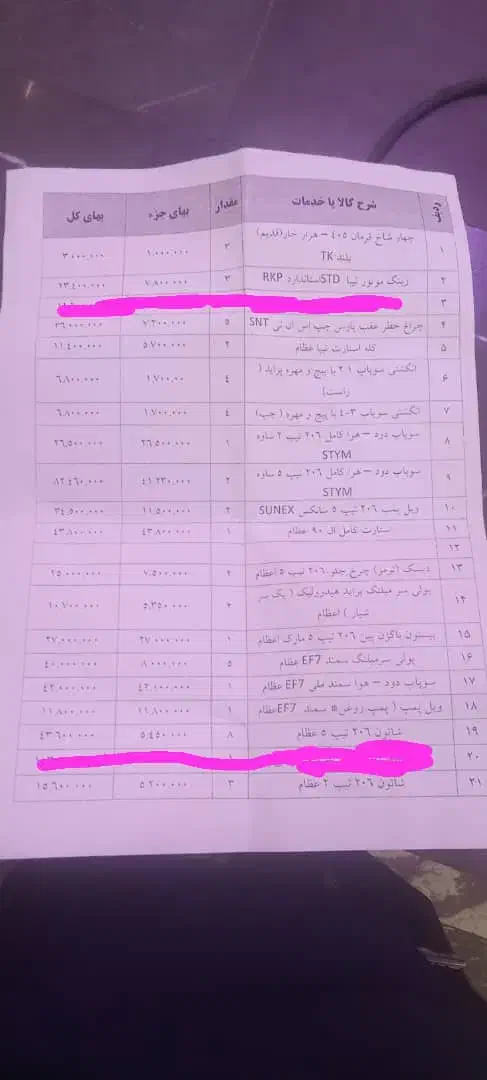 ردیف شرح کالا یا خدمات مقدار بهای جزء بهای کل
۱ چهار شاخ فرمان ۴۰۵ – هزار خار(قدیم) بلند TK ۳ ۱.۰۰۰.۰۰۰ ۳.۰۰۰.۰۰۰
۲ رینگ موتور تیبا STDاستاندارد RKP ۳ ۷.۸۰۰.۰۰۰ ۲۳.۴۰۰.۰۰۰
۳
۴ چراغ خطر عقب پارس چپ اس ان تی SNT ۵ ۷.۲۰۰.۰۰۰ ۳۶.۰۰۰.۰۰۰
۵ کله استارت تیبا عظام ۲ ۵.۷۰۰.۰۰۰ ۱۱.۴۰۰.۰۰۰
۶ انگشتی سوپاپ ۲.۱ با پیچ و مهره پراید ( راست) ۴ ۱.۷۰۰.۰۰ ۶.۸۰۰.۰۰۰
۷ انگشتی سوپاپ ۳-۴ با پیچ و مهره ( چپ) ۴ ۱.۷۰۰.۰۰۰ ۶.۸۰۰.۰۰۰
۸ سوپاپ دود – هوا کامل ۲۰۶ تیپ ۲ ساوه STYM ۱ ۲۶.۵۰۰.۰۰۰ ۲۶.۵۰۰.۰۰۰
۹ سوپاپ دود – هوا کامل ۲۰۶ تیپ ۵ ساوه STYM ۲ ۴۱.۲۳۰.۰۰۰ ۸۲.۴۶۰.۰۰۰
۱۰ ویل پمپ ۲۰۶ تیپ ۵ سانکس SUNEX ۳ ۱۱.۵۰۰.۰۰۰ ۳۴.۵۰۰.۰۰۰
۱۱ استارت کامل ال ۹۰ عظام ۱ ۴۳.۸۰۰.۰۰۰ ۴۳.۸۰۰.۰۰۰
۱۲
۱۳ دیسک (ترمز) چرخ جلو ۲۰۶ تیپ ۵ اعظام ۲ ۷.۵۰۰.۰۰۰ ۱۵.۰۰۰.۰۰۰
۱۴ پولی سر میلنگ پراید هیدرولیک ( یک سر شیار ) اعظام ۲ ۵.۳۵۰.۰۰۰ ۱۰.۷۰۰.۰۰۰
۱۵ پیستون باگژن پین ۲۰۶ تیپ ۵ مارک اعظام ۱ ۲۷.۰۰۰.۰۰۰ ۲۷.۰۰۰.۰۰۰
۱۶ پولی سرمیلنگ سمند EF7 عظام ۵ ۸.۰۰۰.۰۰۰ ۴۰.۰۰۰.۰۰۰
۱۷ سوپاپ دود – هوا سمند ملی EF7 عظام ۱ ۴۲.۰۰۰.۰۰۰ ۴۲.۰۰۰.۰۰۰
۱۸ ویل پمپ ( پمپ روغن) سمند EF7عظام ۱ ۱۱.۸۰۰.۰۰۰ ۱۱.۸۰۰.۰۰۰
۱۹ شاتون ۲۰۶ تیپ ۵ عظام ۸ ۵.۴۵۰.۰۰۰ ۴۳.۶۰۰.۰۰۰
۲۰ ۱
۲۱ شاتون ۲۰۶ تیپ ۲ عظام ۳ ۵.۲۰۰.۰۰۰ ۱۵.۶۰۰.۰۰۰